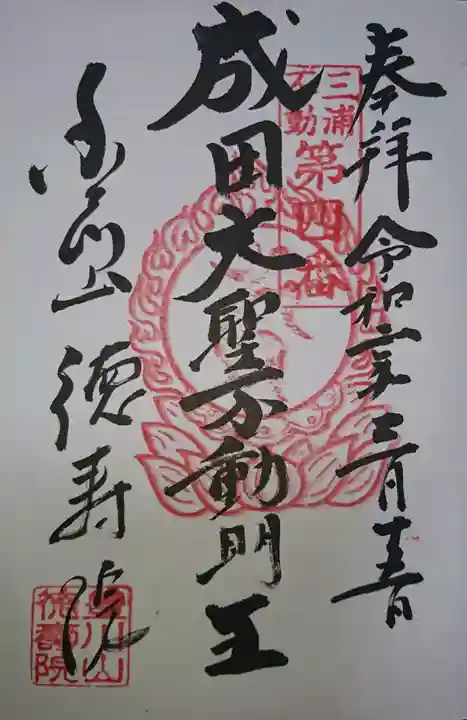 奉拝 令和二年三月十五日
三浦
不動
第四番
成田大聖不動明王
徳寿院
山
徳壽院